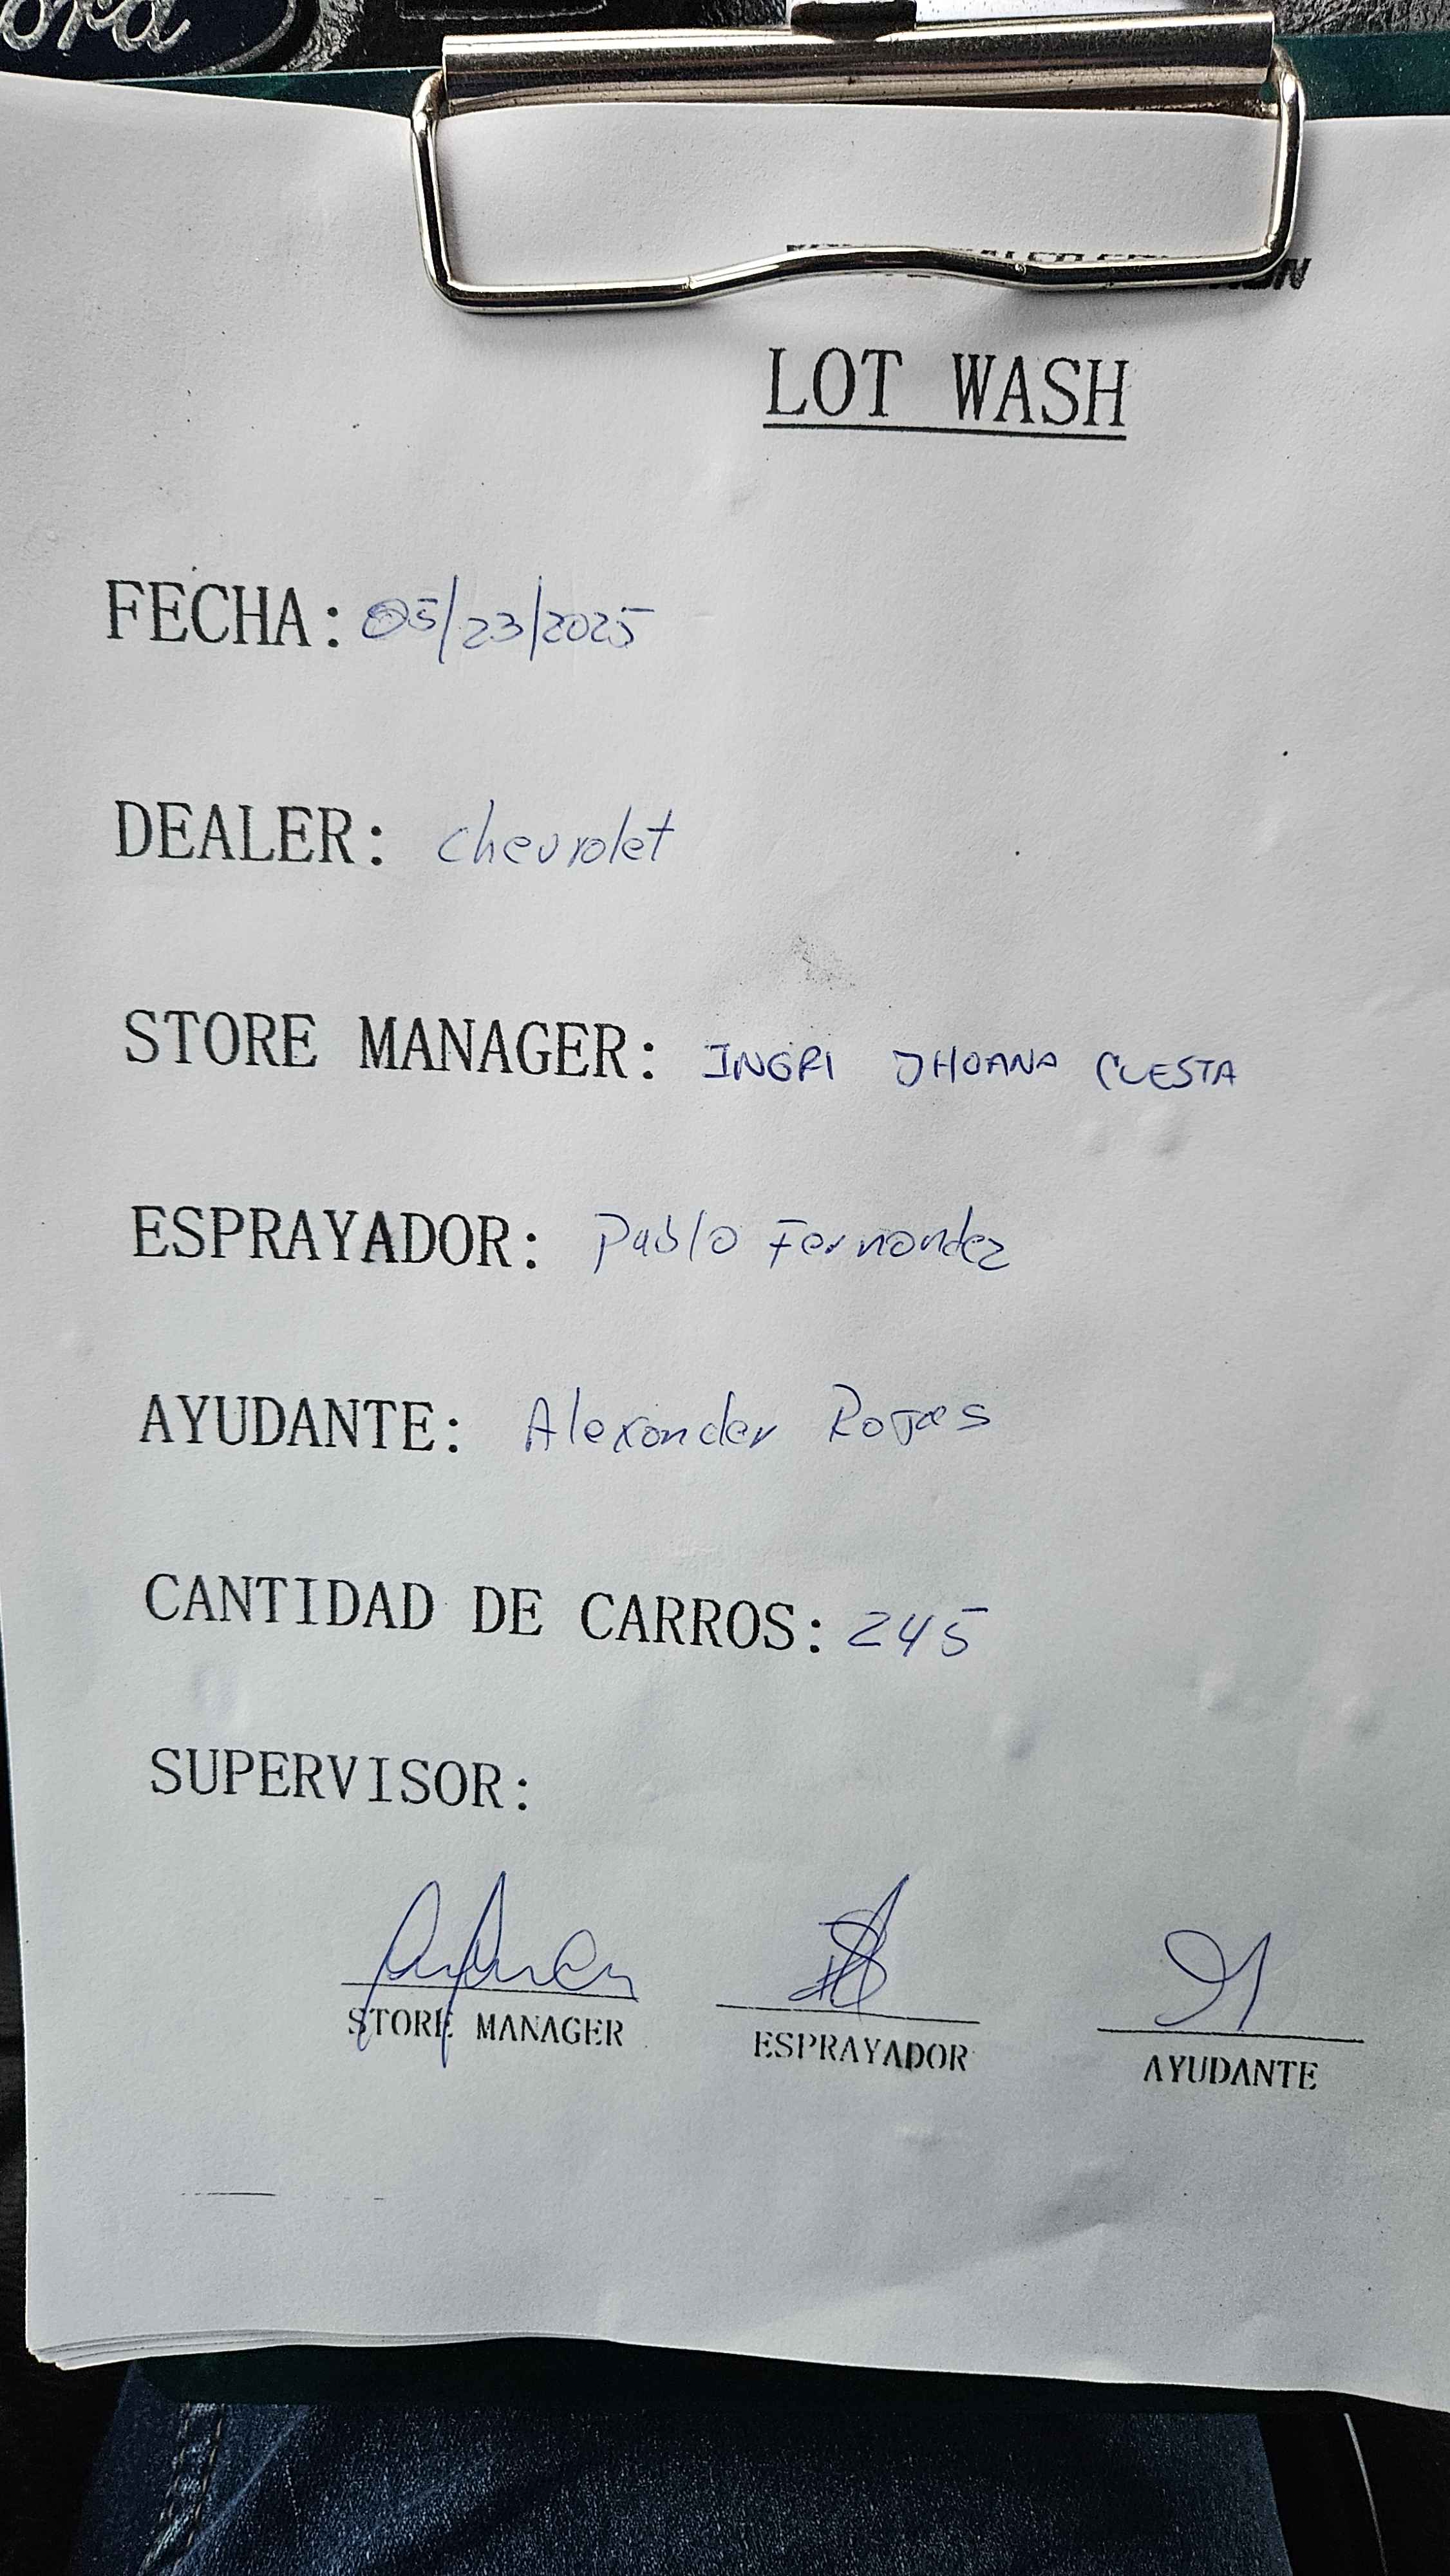 LOT WASH
FECHA: 05/23/2025
DEALER: Chevrolet
STORE MANAGER: INGRI JHOANA CUESTA
ESPRAYADOR: Pablo Fernandez
AYUDANTE: Alexander Rojas
CANTIDAD DE CARROS: 245
SUPERVISOR:
STORE MANAGER
ESPRAYADOR
AYUDANTE